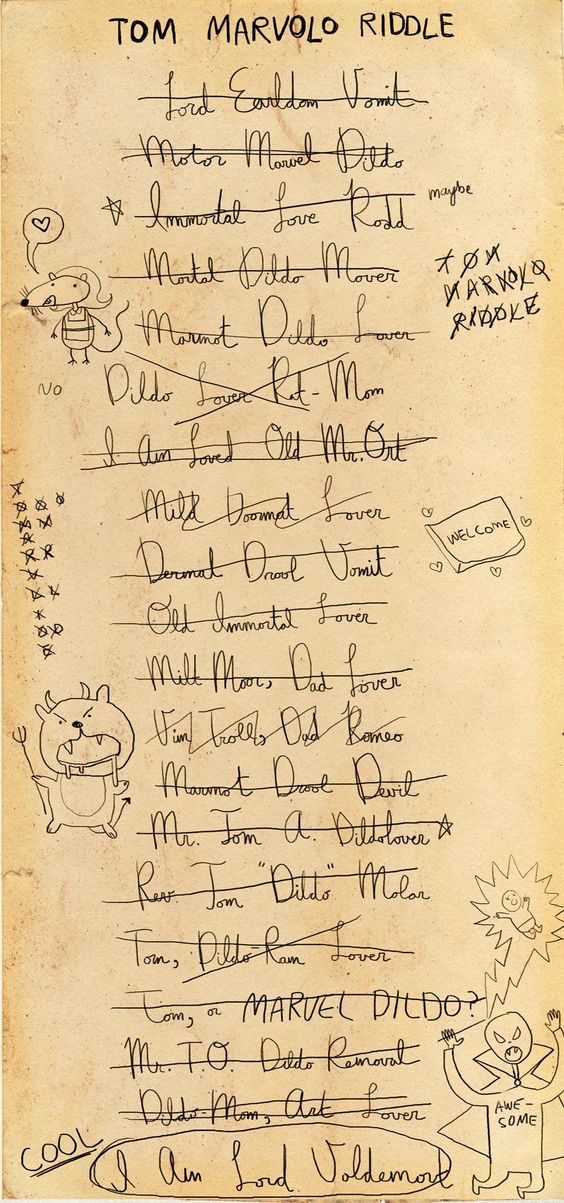 TOM MARVOLO RIDDLE
Lord Earldom Vomit
Motor Marvel Dildo
Immortal Love Rodd maybe
Mortal Dildo Mover
TOM
MARVOLO
RIDDLE
Marmot Dildo Lover
NO
Dildo Lover Rat-Mom
I Am Loved Old Mr. Ort
Mild Doormat Lover
WELCOME
Dermal Drool Vomit
Old Immortal Lover
Milt Moor, Dad Lover
Vim Troll, Dad Romeo
Marmot Drool Devil
Mr. Tom A. Dildolover
Rev. Tom "Dildo" Molar
Tom, Dildo-Ram Lover
Tom, or MARVEL DILDO?
Mr. T.O. Dildo Removal
Dildo-Mom, Art Lover
AWE-
SOME
COOL
I Am Lord Voldemort